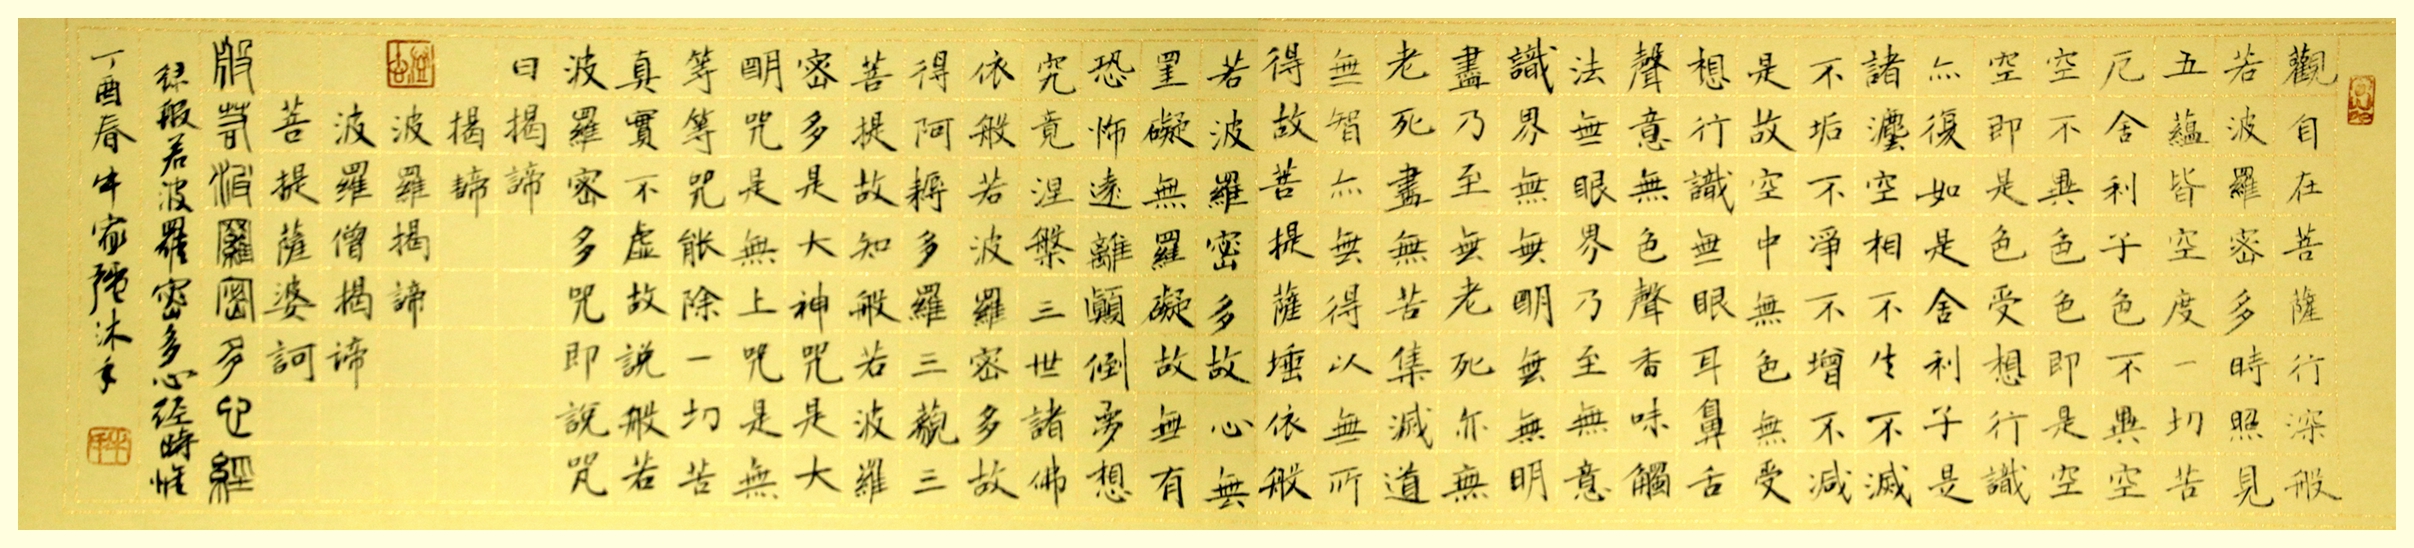 觀自在菩薩行深般
若波羅密多時照見
五蘊皆空度一切苦
厄舍利子色不異空
空不異色色即是空
空即是色受想行識
亦復如是舍利子是
諸灋空相不生不滅
不垢不淨不增不減
是故空中無色無受
想行識無眼耳鼻舌
聲意無色聲香味觸
法無眼界乃至無意
識界無無明無無明
盡乃至無老死亦無
老死盡無苦集滅道
無智亦無得以無所
得故菩提薩埵依般
若波羅密多故心無
罣礙無羅礙故無有
恐怖遠離顛倒夢想
究竟涅槃三世諸佛
依般若波羅密多故
得阿耨多羅三藐三
菩提故知般若波羅
密多是大神咒是大
明咒是無上咒是無
等等咒能除一切苦
真實不虛故說般若
波羅密多咒即說咒
曰揭諦
揭諦
波羅揭諦
波羅僧揭諦
菩提薩婆訶
般若波羅密多心經
錄般若波羅密多心經時惟
丁酉春牛家強沐手